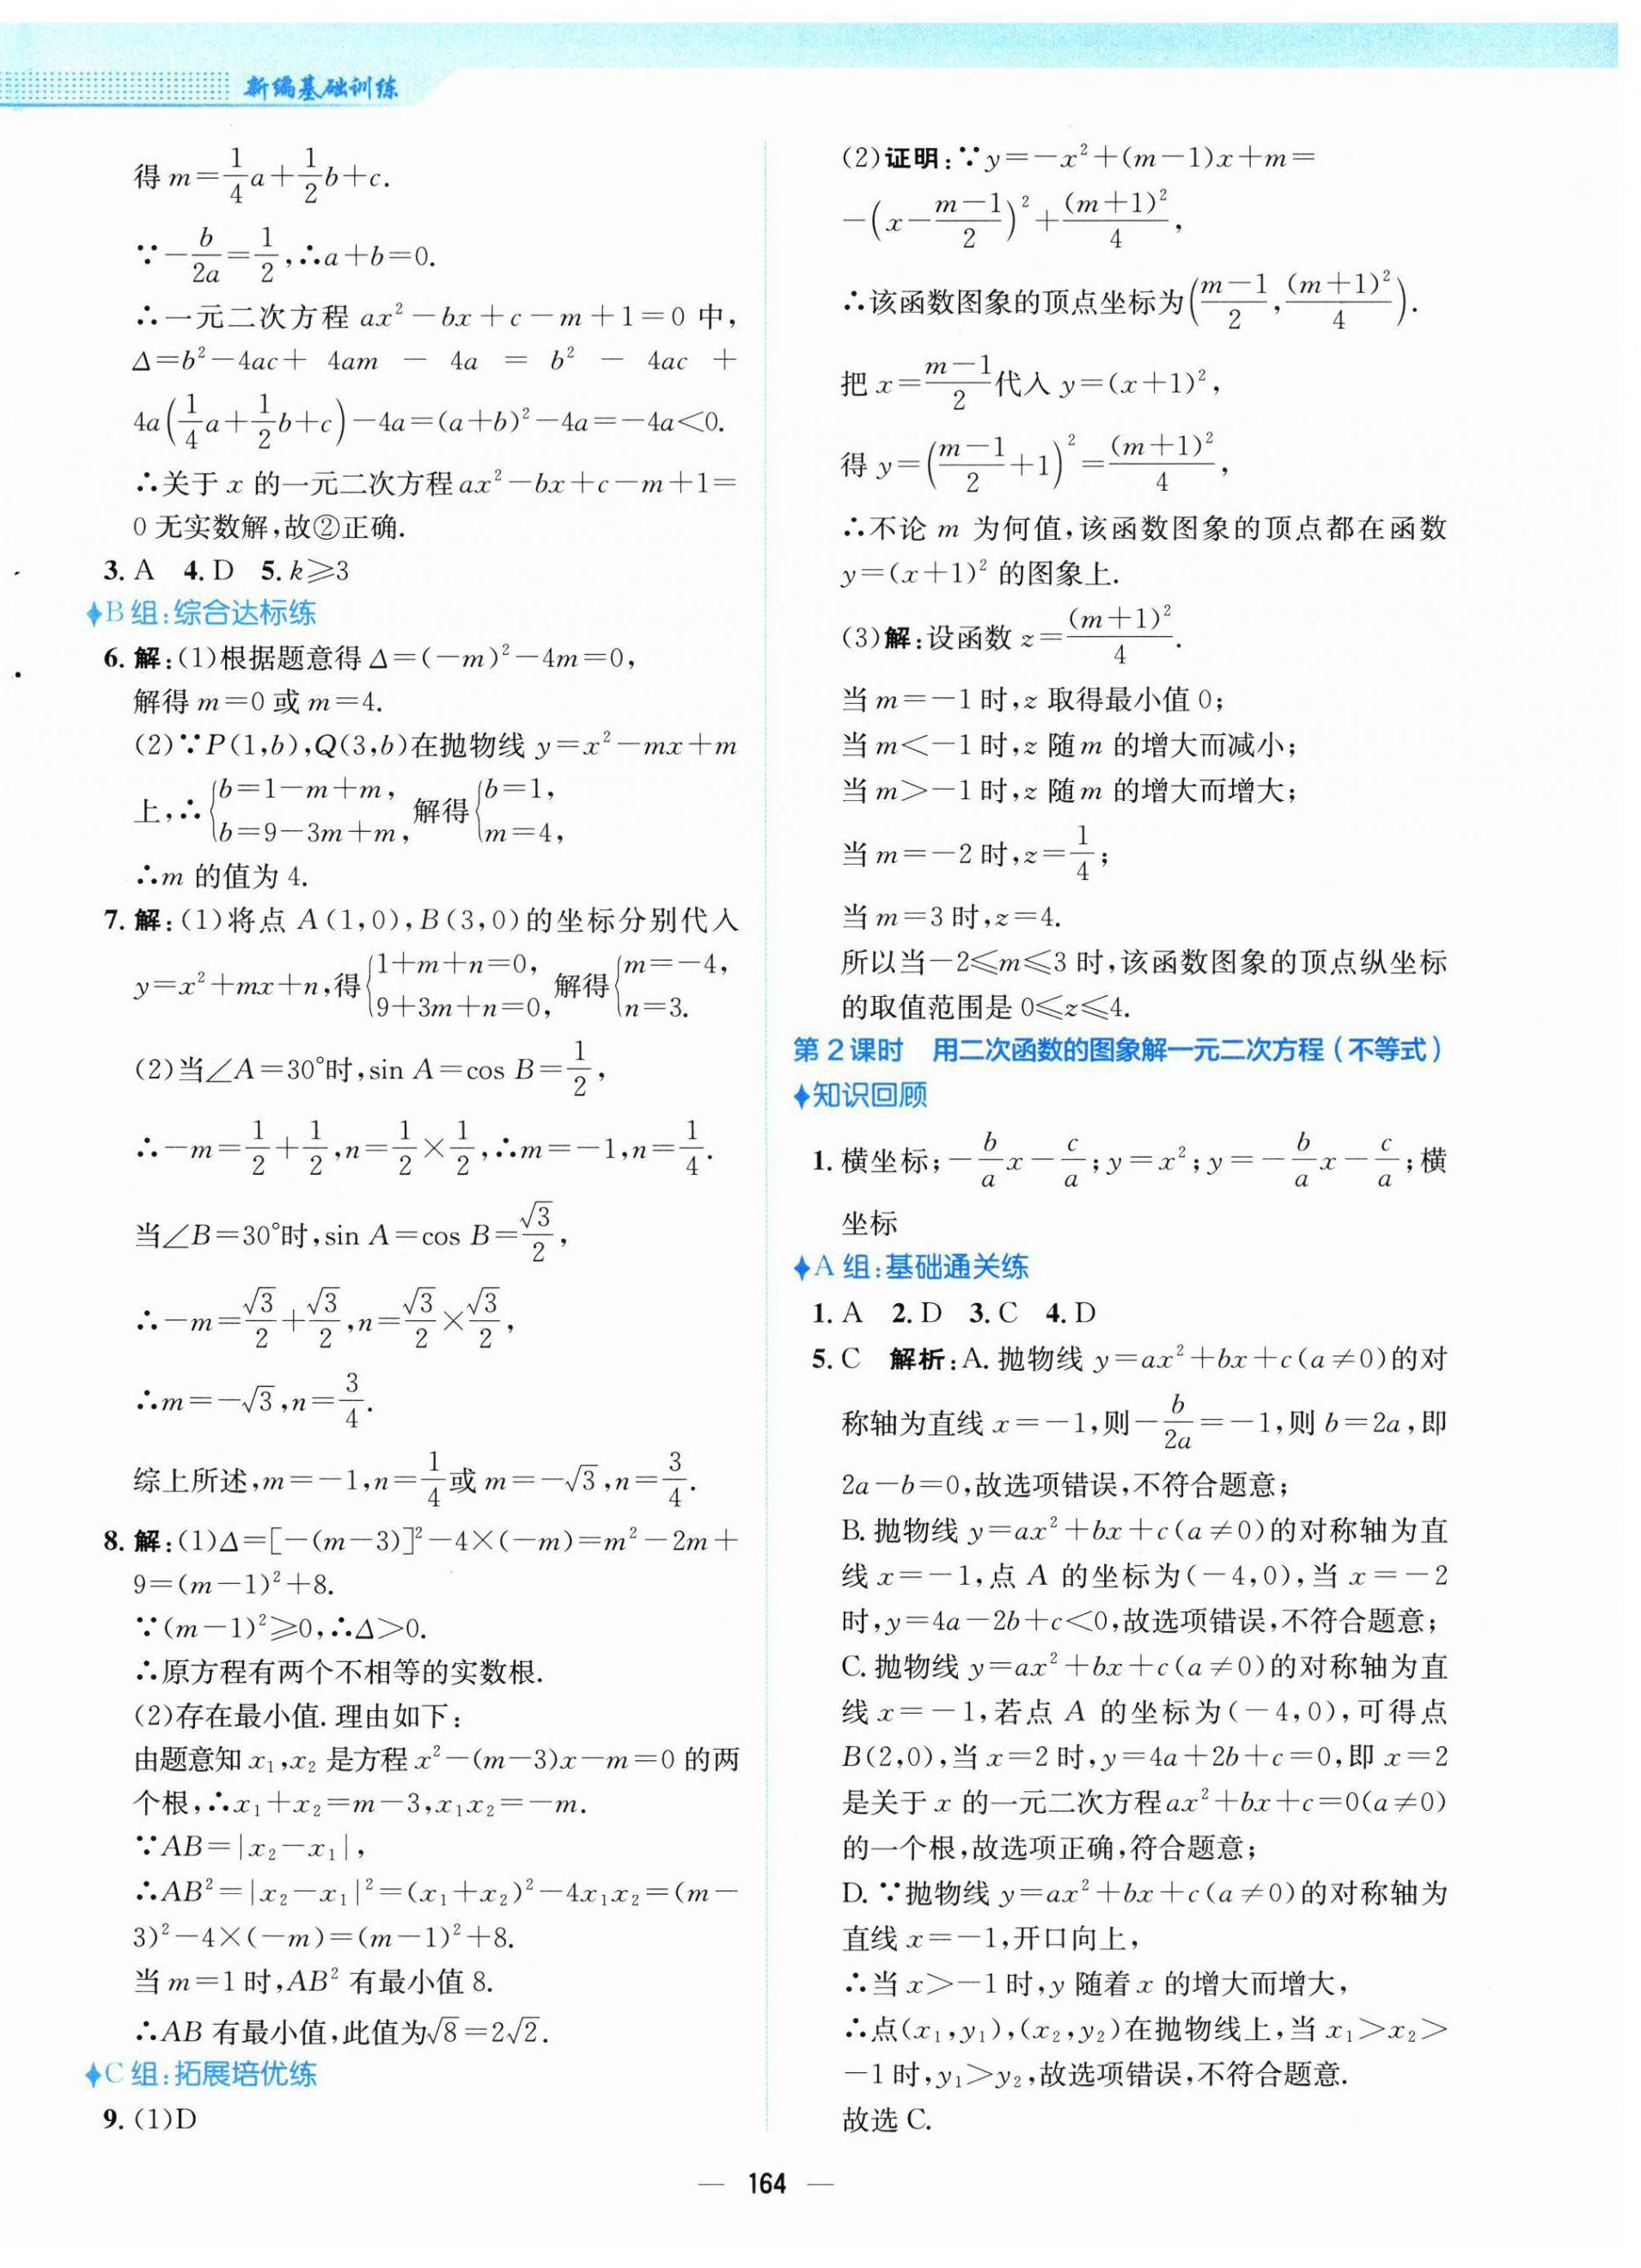 新编基础训练
得 m=\frac{1}{4}a+\frac{1}{2}b+c.
∵-\frac{b}{2a}=\frac{1}{2},∴a+b=0.
∴一元二次方程 ax²-bx+c-m+1=0 中,
Δ=b²-4ac+ 4am - 4a = b² - 4ac +
4a(\frac{1}{4}a+\frac{1}{2}b+c)-4a=(a+b)²-4a=-4a<0.
∴关于 x 的一元二次方程 ax²-bx+c-m+1=
0 无实数解,故②正确.
3. A 4. D 5. k⩾3
B 组:综合达标练
6. 解:(1)根据题意得 Δ=(-m)²-4m=0,
解得 m=0 或 m=4.
(2)∵P(1,b),Q(3,b)在抛物线 y=x²-mx+m
上,∴{b=1-m+m, b=9-3m+m, 解得{b=1, m=4,
∴m 的值为 4.
7. 解:(1)将点 A(1,0),B(3,0)的坐标分别代入
y=x²+mx+n,得{1+m+n=0, 9+3m+n=0, 解得{m=-4, n=3.
(2)当∠A=30°时,sin A=cos B=\frac{1}{2},
∴-m=\frac{1}{2}+\frac{1}{2},n=\frac{1}{2}×\frac{1}{2},∴m=-1,n=\frac{1}{4}.
当∠B=30°时,sin A=cos B=\frac{√3}{2},
∴-m=\frac{√3}{2}+\frac{√3}{2},n=\frac{√3}{2}×\frac{√3}{2},
∴m=-√3,n=\frac{3}{4}.
综上所述,m=-1,n=\frac{1}{4}或 m=-√3,n=\frac{3}{4}.
8. 解:(1)Δ=[-(m-3)]²-4×(-m)=m²-2m+
9=(m-1)²+8.
∵(m-1)²⩾0,∴Δ>0.
∴原方程有两个不相等的实数根.
(2)存在最小值. 理由如下:
由题意知 x₁,x₂ 是方程 x²-(m-3)x-m=0 的两
个根,∴x₁+x₂=m-3,x₁x₂=-m.
∵AB=|x₂-x₁|,
∴AB²=|x₂-x₁|²=(x₁+x₂)²-4x₁x₂=(m-
3)²-4×(-m)=(m-1)²+8.
当 m=1 时,AB² 有最小值 8.
∴AB 有最小值,此值为√8=2√2.
C 组:拓展培优练
9. (1)D
(2)证明:∵y=-x²+(m-1)x+m=
-(x-\frac{m-1}{2})²+\frac{(m+1)²}{4},
∴该函数图象的顶点坐标为(\frac{m-1}{2},\frac{(m+1)²}{4}).
把 x=\frac{m-1}{2}代入 y=(x+1)²,
得 y=(\frac{m-1}{2}+1)²=\frac{(m+1)²}{4},
∴不论 m 为何值,该函数图象的顶点都在函数
y=(x+1)² 的图象上.
(3)解:设函数 z=\frac{(m+1)²}{4}.
当 m=-1 时,z 取得最小值 0;
当 m<-1 时,z 随 m 的增大而减小;
当 m>-1 时,z 随 m 的增大而增大;
当 m=-2 时,z=\frac{1}{4};
当 m=3 时,z=4.
所以当-2⩽m⩽3 时,该函数图象的顶点纵坐标
的取值范围是 0⩽z⩽4.
第 2 课时 用二次函数的图象解一元二次方程(不等式)
知识回顾
1. 横坐标;-\frac{b}{a}x-\frac{c}{a};y=x²;y=-\frac{b}{a}x-\frac{c}{a};横
坐标
A 组:基础通关练
1. A 2. D 3. C 4. D
5. C 解析:A. 抛物线 y=ax²+bx+c(a≠0)的对
称轴为直线 x=-1,则-\frac{b}{2a}=-1,则 b=2a,即
2a-b=0,故选项错误,不符合题意;
B. 抛物线 y=ax²+bx+c(a≠0)的对称轴为直
线 x=-1,点 A 的坐标为(-4,0),当 x=-2
时,y=4a-2b+c<0,故选项错误,不符合题意;
C. 抛物线 y=ax²+bx+c(a≠0)的对称轴为直
线 x=-1,若点 A 的坐标为(-4,0),可得点
B(2,0),当 x=2 时,y=4a+2b+c=0,即 x=2
是关于 x 的一元二次方程 ax²+bx+c=0(a≠0)
的一个根,故选项正确,符合题意;
D. ∵抛物线 y=ax²+bx+c(a≠0)的对称轴为
直线 x=-1,开口向上,
∴当 x>-1 时,y 随着 x 的增大而增大,
∴点(x₁,y₁),(x₂,y₂)在抛物线上,当 x₁>x₂>
-1 时,y₁>y₂,故选项错误,不符合题意.
故选 C.
— 164 —